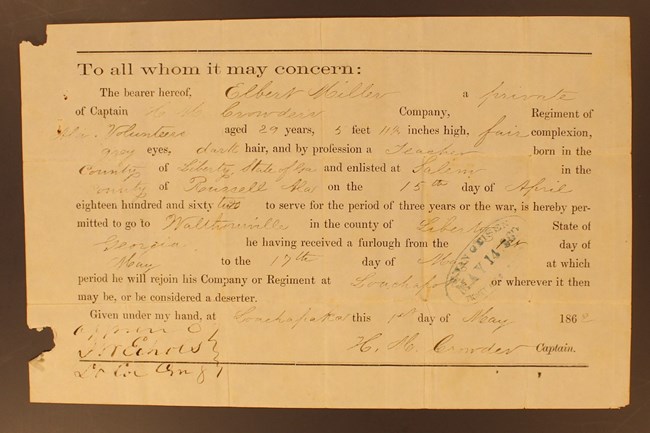 To all whom it may concern:
The bearer hereof, Elbert Miller a private
of Captain H. H. Crowders Company, Regiment of
Volunteers aged 29 years, 5 feet 11½ inches high, fair complexion,
grey eyes, dark hair, and by profession a Teacher born in the
County of Liberty State of and enlisted at Salem in the
of Russell Ala on the 15th day of April
eighteen hundred and sixty two to serve for the period of three years or the war, is hereby per-
mitted to go to Walthourville in the county of Liberty State of
Georgia he having received a furlough from the day of
May to the 17th day of May at which
period he will rejoin his Company or Regiment at Loachapo or wherever it then
may be, or be considered a deserter.
Given under my hand, at Loachapoka this 1st day of May 1862
H. H. Crowder Captain.
MAY 14